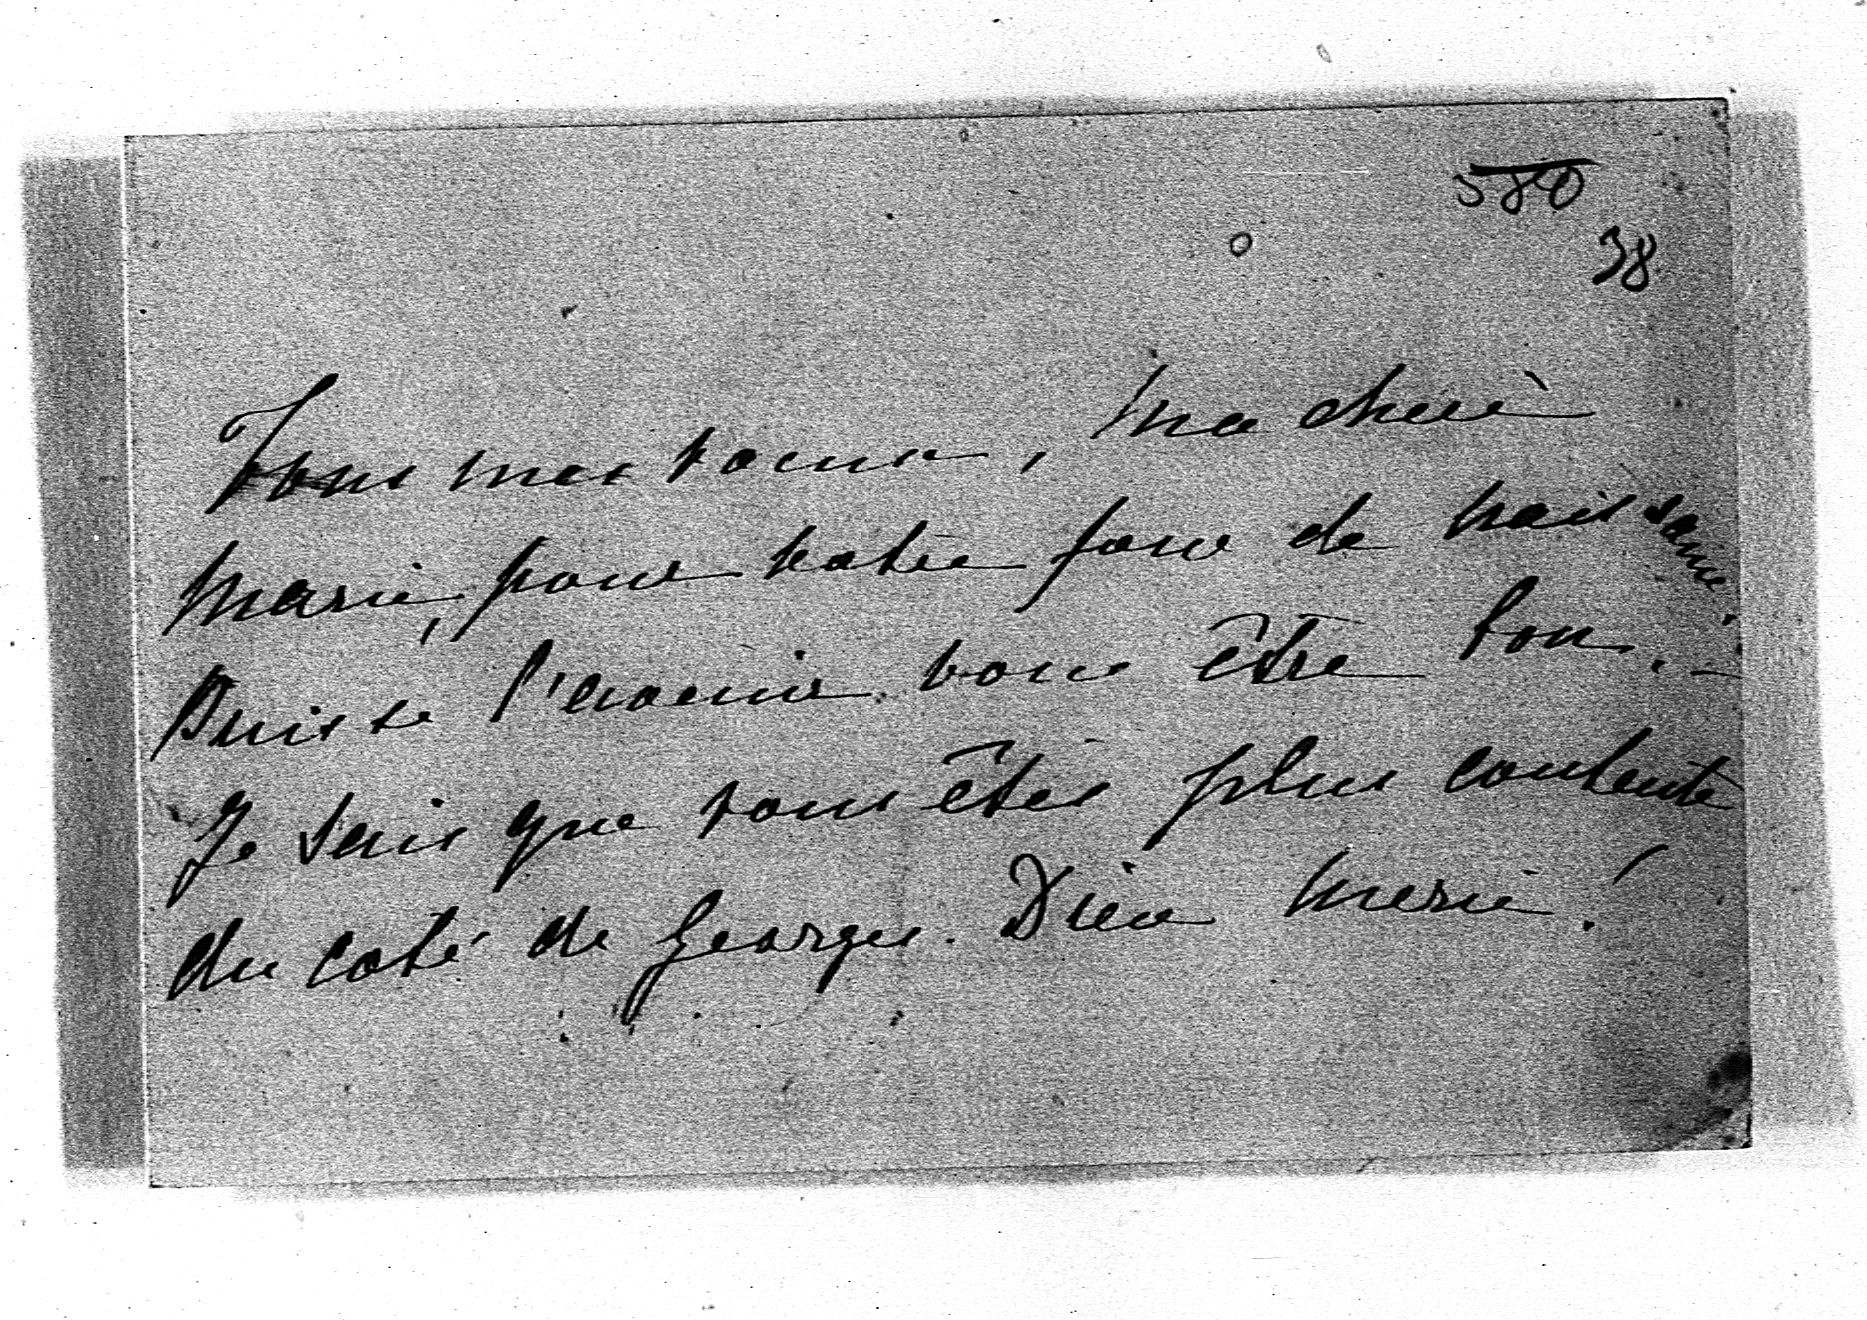 580
38
Tous mes vœux, ma chère
Marie, pour votre jour de naissance.
Puisse l'avenir vous être bon. –
Je sais que vous êtes plus contente
du coté de Georges. Dieu merci!